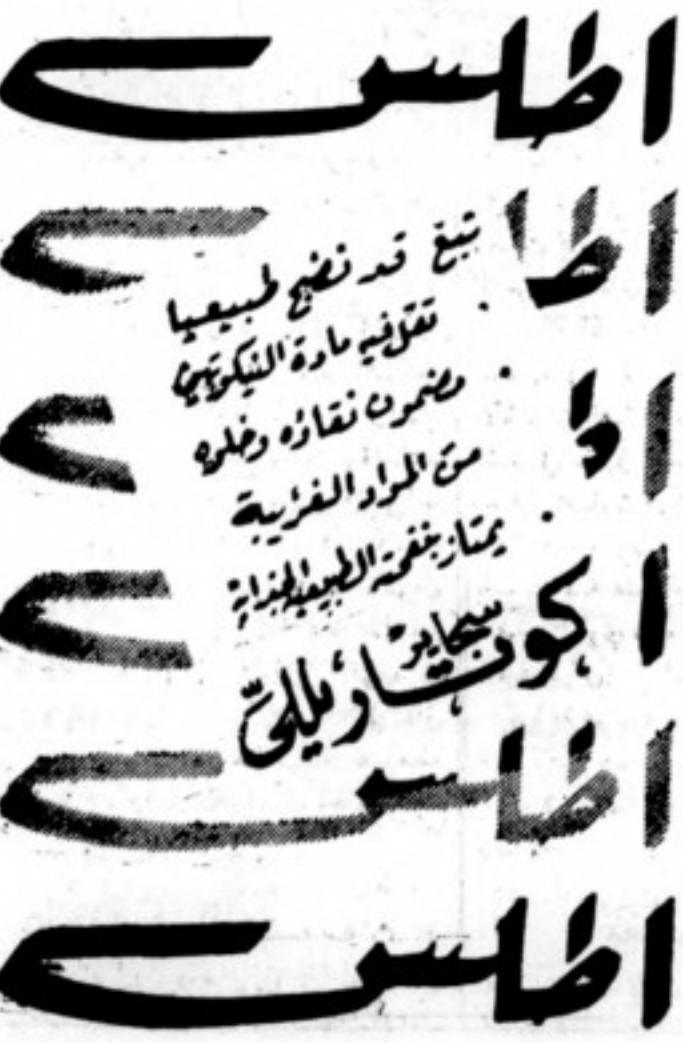 اطلس
تبغ قد نضج طبيعيا
• تقل فيه مادة النيكوتين
• مضمون نقاؤه وخلوه
من المواد الغريبة
• يمتاز بنفحته الطبيعية الجذابة
سجاير
كوتاريللى
اطلس
اطلس